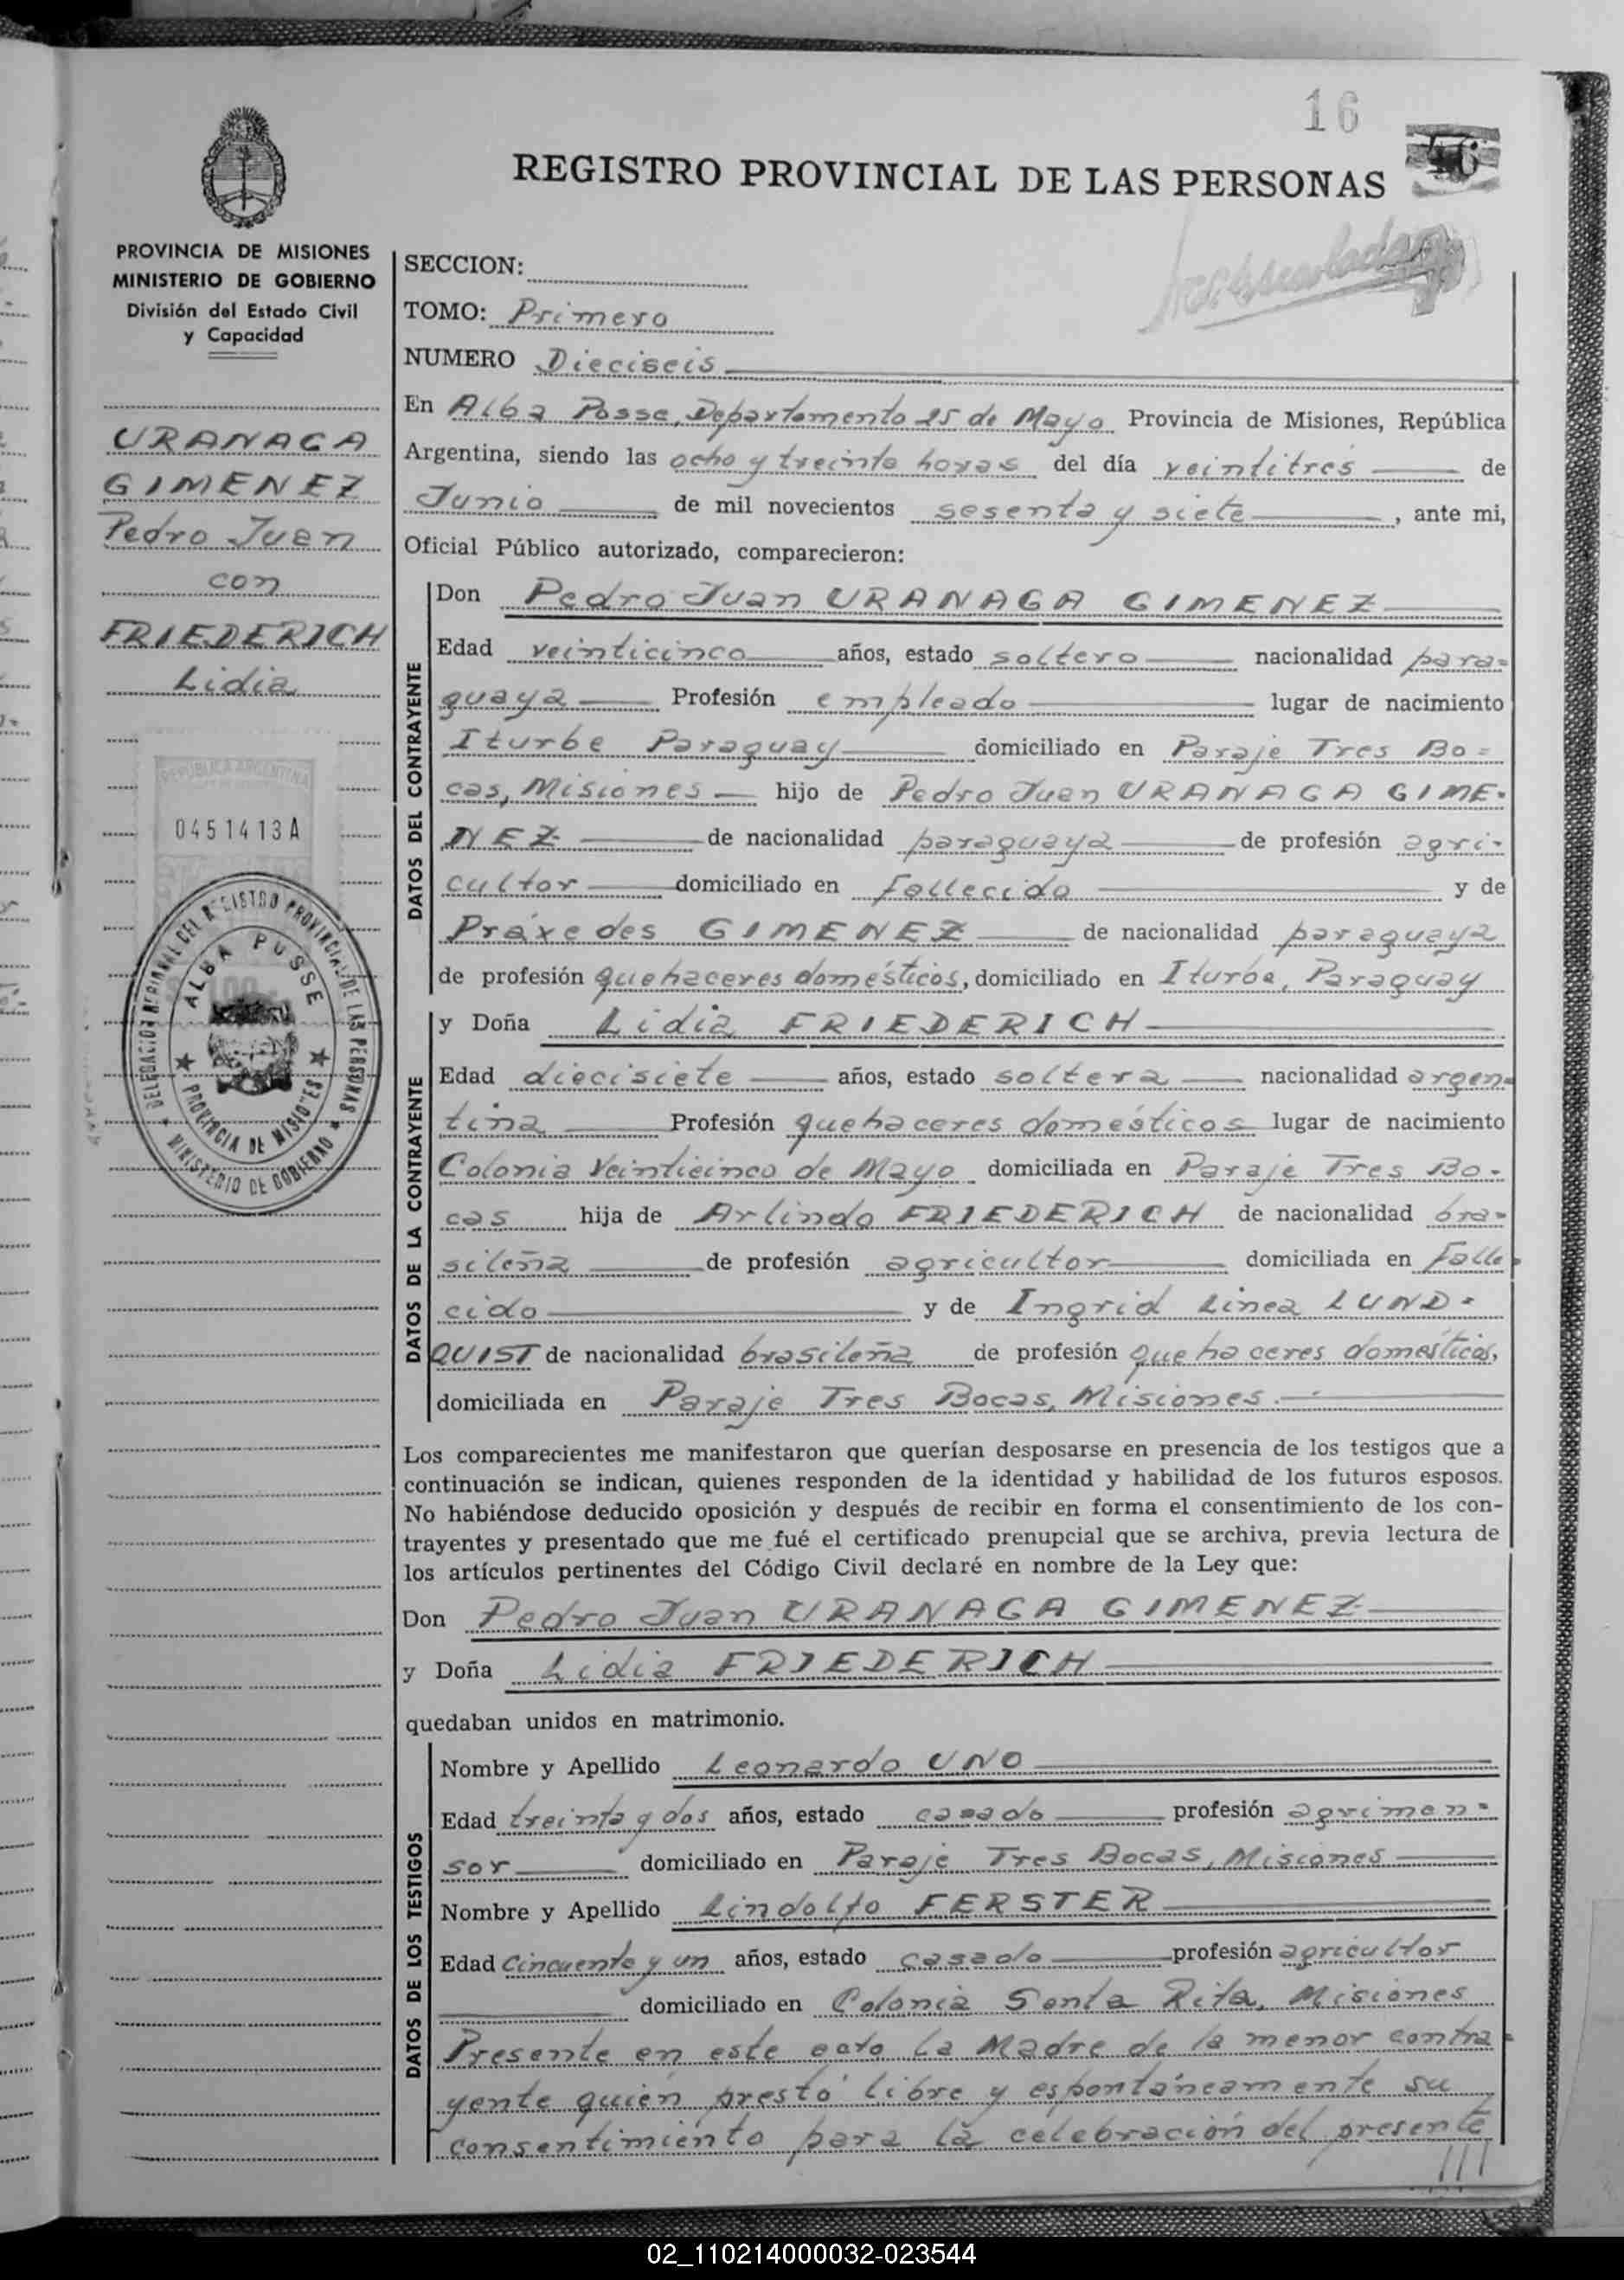 16
16
REGISTRO PROVINCIAL DE LAS PERSONAS
PROVINCIA DE MISIONES
MINISTERIO DE GOBIERNO
División del Estado Civil
y Capacidad
URANAGA
GIMENEZ
Pedro Juan
con
FRIEDERICH
Lidia
REPUBLICA ARGENTINA
0451413A
DELEGACION REGIONAL DEL REGISTRO PROVINCIAL DE LAS PERSONAS
ALBA POSSE
PROVINCIA DE MISIONES
MINISTERIO DE GOBIERNO
SECCION:
TOMO: Primero
NUMERO Dieciseis
En Alba Posse, Departamento 25 de Mayo Provincia de Misiones, República
Argentina, siendo las ocho y treinta horas del día veintitres de
Junio de mil novecientos sesenta y siete, ante mi,
Oficial Público autorizado, comparecieron:
DATOS DEL CONTRAYENTE
Don Pedro Juan URANAGA GIMENEZ
Edad veinticinco años, estado soltero nacionalidad para-
guaya Profesión empleado lugar de nacimiento
Iturbe Paraguay domiciliado en Paraje Tres Bo-
cas, Misiones hijo de Pedro Juan URANAGA GIME-
NEZ de nacionalidad paraguaya de profesión agri-
cultor domiciliado en fallecido y de
Práxedes GIMENEZ de nacionalidad paraguaya
de profesión quehaceres domésticos, domiciliado en Iturbe, Paraguay
DATOS DE LA CONTRAYENTE
y Doña Lidia FRIEDERICH
Edad diecisiete años, estado soltera nacionalidad argen-
tina Profesión quehaceres domésticos lugar de nacimiento
Colonia Veinticinco de Mayo domiciliada en Paraje Tres Bo-
cas hija de Arlindo FRIEDERICH de nacionalidad bra-
sileña de profesión agricultor domiciliada en falle-
cido y de Ingrid Linea LUND-
QUIST de nacionalidad brasileña de profesión quehaceres domésticos,
domiciliada en Paraje Tres Bocas, Misiones.
Los comparecientes me manifestaron que querían desposarse en presencia de los testigos que a
continuación se indican, quienes responden de la identidad y habilidad de los futuros esposos.
No habiéndose deducido oposición y después de recibir en forma el consentimiento de los con-
trayentes y presentado que me fué el certificado prenupcial que se archiva, previa lectura de
los artículos pertinentes del Código Civil declaré en nombre de la Ley que:
Don Pedro Juan URANAGA GIMENEZ
y Doña Lidia FRIEDERICH
quedaban unidos en matrimonio.
DATOS DE LOS TESTIGOS
Nombre y Apellido Leonardo UNO
Edad treinta y dos años, estado casado profesión agrimen-
sor domiciliado en Paraje Tres Bocas, Misiones
Nombre y Apellido Lindolfo FERSTER
Edad cincuenta y un años, estado casado profesión agricultor
domiciliado en Colonia Santa Rita, Misiones
Presente en este acto la Madre de la menor contra-
yente quien prestó libre y espontáneamente su
consentimiento para la celebración del presente
///
02_110214000032-023544